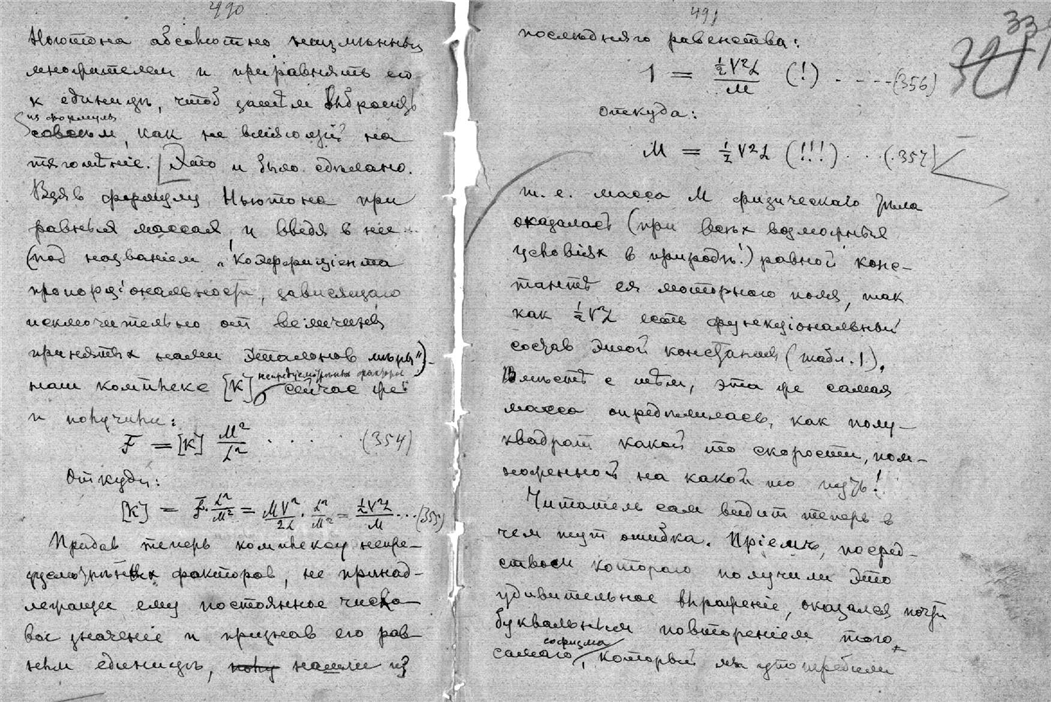 490
Ньютона абсолютно неизмѣннымъ
множителем и приравнять его
к единицѣ, чтоб затѣм выбросить
из формулы
совсѣм, как не вліяющій на
тяготѣніе. Это и было сдѣлано.
Взяв формулу Ньютона при
равных массах и введя в нее
(под названіем „коэффиціента
пропорціональности, зависящаго
исключительно от величины
принятых нами эталонов мѣры")
непредусмотрѣнных факторов
наш комплекс [K] сейчас же
и получили:
F = [K] M²/L² . . . . (354)
Откуда:
[K] = F·L²/M² = MV²/2L · L²/M² = ½V²L/M ... (355)
Придав теперь комплексу непре-
дусмотрѣнных факторов, не принад-
лежащее ему постоянное число-
вое значеніе и признав его рав-
ным единицѣ, нашли из
491
послѣдняго равенства:
1 = ½V²L/M (!) . . . . (356)
откуда:
M = ½V²L (!!!) . . . (357)
т. е. масса M физическаго тѣла
оказалась (при всѣх возможных
условіях в природѣ!) равной конс-
тантѣ ея моторнаго поля, так
как ½V²L есть функціональный
состав этой константы (табл. 1).
Вмѣстѣ с тѣм, эта же самая
масса опредѣлилась, как полу-
квадрат какой то скорости, пом-
ноженной на какой то путь!
Читатель сам видит теперь в
чем тут ошибка. Пріемъ, посред-
ством котораго получили это
удивительное выраженіе, оказался почти
буквальным повтореніем того
софизма
самаго, который мы употребили